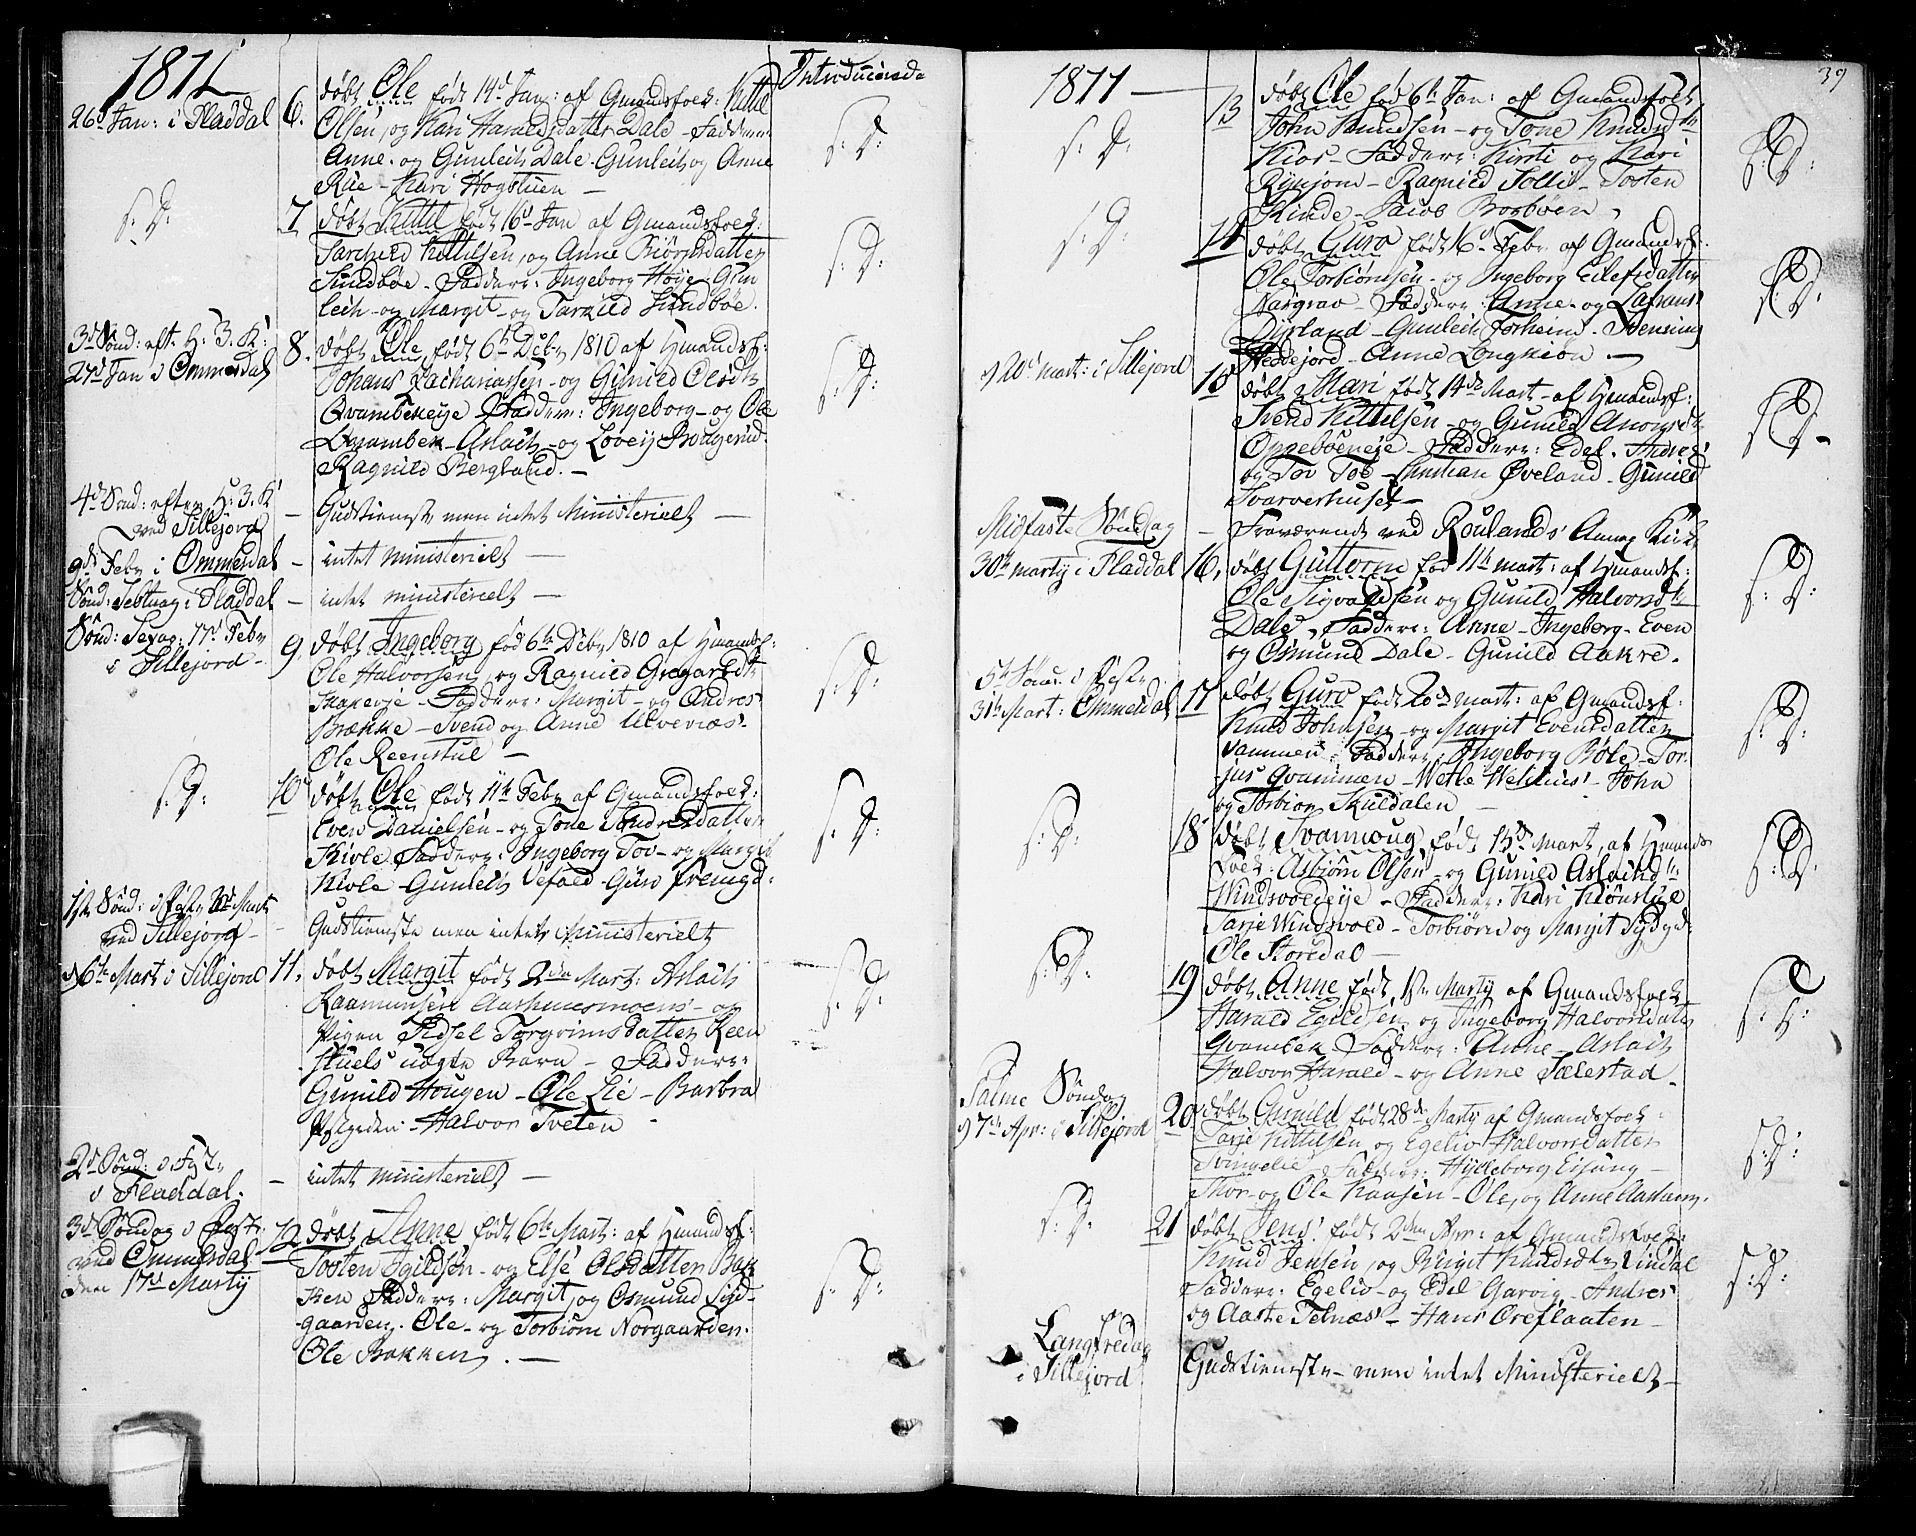 1811
Introducerede
26d Jan: i Fladdal
6.
døbt Ole født 14d Jan: af Gmandsfolk: Kittil
Olsen, og Kari Haraldsdatter Dale – Faddere:
Anne og Gunleik Dale – Gunleik og Anne
Rue – Kari Hogstuen –
s: D:
s: D:
7
døbt Kittil født 16d Jan af Gmandsfolk:
Tarkield Kittilsen, og Anne Biörnsdatter
Sundbøe – Faddere: Ingeborg Høye – Gun
leik – og Margit – og Tarkild Sundbøe.
s: D:
3d Sønd: eft. H. 3. K:
27d Jan i Ommesdal
8.
døbt Ole, født 6te Debr 1810 af Hmandsf:
Johans Zachariassen – og Gunild Olsdtr
Qvambekeije – Faddere: Ingeborg – og Ole
Qvambek – Aslak – og Lovеij Rougerud
Ragnild Bergland. –
s: D:
4d Sønd: efter H: 3. K
ved Sillejord
–
Gudstieneste men intet Ministerielt –
9de Febr i Ommesdal – intet ministerielt –
Sønd: Septuag: i Fladdal – intet ministerielt –
Sønd: Sexag: 17d Febr
i Sillejord –
9
døbt Ingeborg fød 6te Debr 1810 af Hmandsf:
Ole Halvorsen, og Ragnild Gregarsdtr
– Faddere: Margit – og Andres
Brække – Svend og Anne Ulvenæs.
Ole Reenstul –
s: D:
s: D:
10
døbt Ole født 11te Febr af Gmandsfolk:
Even Danielsen – og Tone Sondresdatter
Kivle Faddere: Ingeborg Tov – og Margit
Kivle – Gunleik –
s: D:
1ste Sønd: i Faste 3d Mart
ved Sillejord –
–
Gudstieneste men intet Ministerielt
d 6te Mart i Sillejord
11.
døbt Margit født 2den Mart: Aslak
Raamunsen – og
Pigen Sidsel Torgrimsdatter Reen
stuels uægte Barn – Faddere:
Gunild Hougen – Ole Lie – Barbra
– Halvor Tveten –
s: D:
2d Sønd: i Fast,
i Fladdal.
– intet ministerielt –
3d Søndag i Fast:
ved Ommesdal
den 17d Martij
12
døbt Anne født 6te Mart: af Hmandsf:
Tosten Egildsøn – og Else Olsdatter Bak
ken Faddere: Margit, og Osmund Syd-
gaarden – Ole – og Torbiörn Norgaarden.
Ole Bakken. –
s: D:
1811 –
39
s. D:
13
døbt Ole fød 6te Jan: af Gmandsfolk
John Knudsen – og Tone Knudsdtr
Kios – Faddere: Kirsti og Kari
– Ragnild Solli – Tosten
Kinde – Jacob
s: D:
s: D:
14
døbt Guro født 6d Febr af Gmandsf:
Ole Torbiörnsen – og Ingeborg Eilefsdatter
Nargrav – Faddere: Anne og Lafrans
Dyrland – Gunleik –
– Anne Longkion –
s: D:
d 20d mart: i Sillejord
15
døbt Mari født 14de Mart – af Hmandsf:
Svend Kittilsen – og Gunild
– Faddere: Edel – Andres
og Tov – Christian Øveland – Gunild
Tvarverhuset –
s: D: –
Midfaste Søndag
– Fraværende ved Roulands Annex Kirke
30te martij i Fladdal
16.
døbt Guttorm fød 11te mart: af Hmandsf:
Ole Sigvaldsen og Gunild Halvorsdtr
Dale, Faddere: Anne – Ingeborg – Even
og Osmund Dale – Gunild Aakre.
s: D:
5te Sønd. i Faste
31te Mart: Ommesdal
17
døbt Guro født 20de mart: af Gmandsf:
Knud Johnsen – og Margit Evensdatter
– Faddere: Ingeborg Bole – Tor-
jus Qvammen – Wetle – John
og Torbiörn Skuldalen –
s: D:
s: D:
18
døbt Svannoug, født 15de Mart, af Hmands
folk: Asbiörn Olsen – og Gunild Aslaksdtr
Windsvoldeije – Faddere: Kari
Tarje Windsvold – Torbiörn og Margit
Ole Storedal –
s: D:
s: D:
19
døbt Anne født, 1ste Martij af Gmandsfolk
Harald Egildsen, og Ingeborg Halvorsdatter
Qvambek – Faddere: Anne – Aslak
Halvor Harald – og Anne Sælestad.
s: D:
Palme Søndag
d 7te Apr: i Sillejord
20
døbt Gunild født 28de Martij af Gmandsfolk:
Tarje Kittilsen, og Egeliv Halvorsdatter
Svingelie Faddere:
Thor – og Ole – Ole, og Anne
s: D:
s: D:
21
døbt Jens født 2den Apr: af Gmandsfolk:
Knud Jensen, og Birgit Knudsdtr Lindal
Faddere: Egeliv – og Edel Garvig – Andres
og Aaste – Hans Oreflaaten –
s: D:
Langfredag
i Sillejord
Gudstieneste – men intet Ministerielt –